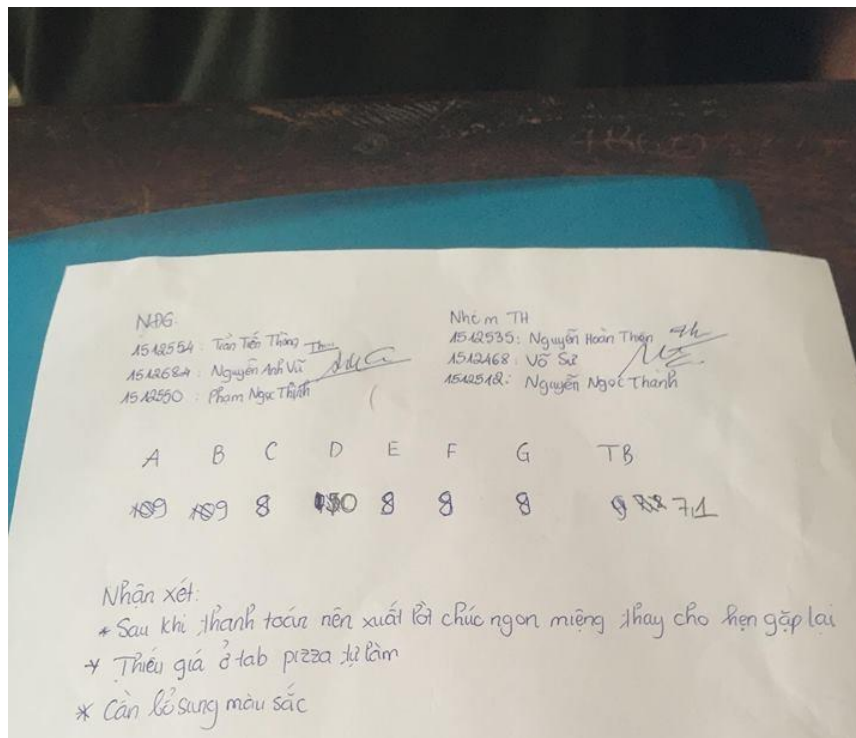 NĐG.
1512554 : Trần Tiến Thông
1512684 : Nguyễn Anh Vũ
1512550 : Phạm Ngọc Thịnh
Nhóm TH
1512535: Nguyễn Hoàn Thiện
1512468: Võ Sử
1512512: Nguyễn Ngọc Thành
A B C D E F G TB
9 9 8 0 8 8 8 7,1
Nhận xét:
* Sau khi thanh toán nên xuất lời chúc ngon miệng thay cho hẹn gặp lại
* Thiếu giá ở tab pizza tự làm
* Cần bổ sung màu sắc